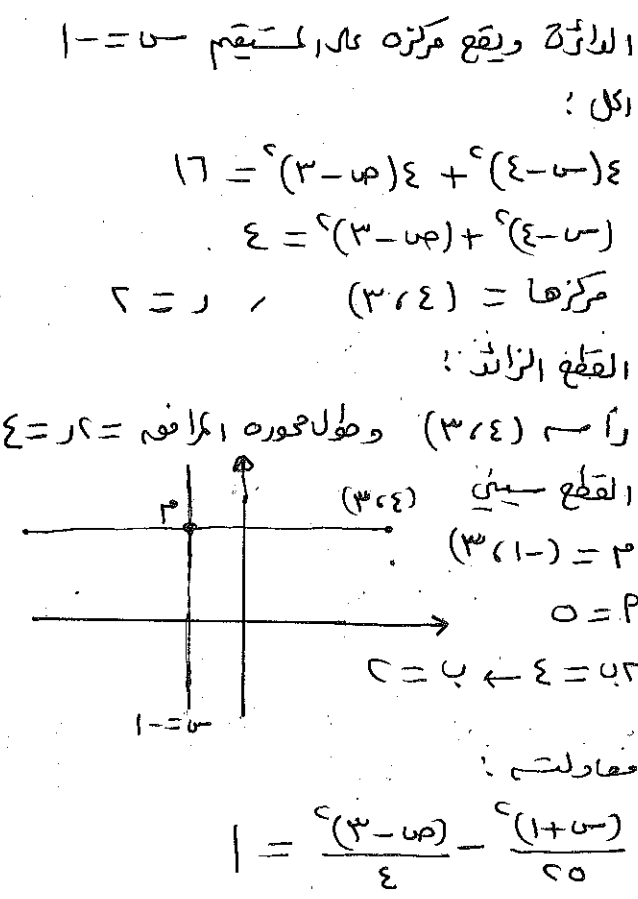 الدائرة ويقع مركزه على المستقيم س = -١
الحل :
٤(س-٤)² + ٤(ص-٣)² = ١٦
(س-٤)² + (ص-٣)² = ٤
مركزها = (٤،٣) ، ر = ٢
القطع الزائد :
رأسه (٤،٣) وطول محوره المرافق = ٢ر = ٤
القطع سيني
م = (-١،٣)
م
(٤،٣)
س = -١
٢ب = ٤ ← ب = ٢
معادلته :
(س+١)²/٢٥ - (ص-٣)²/٤ = ١